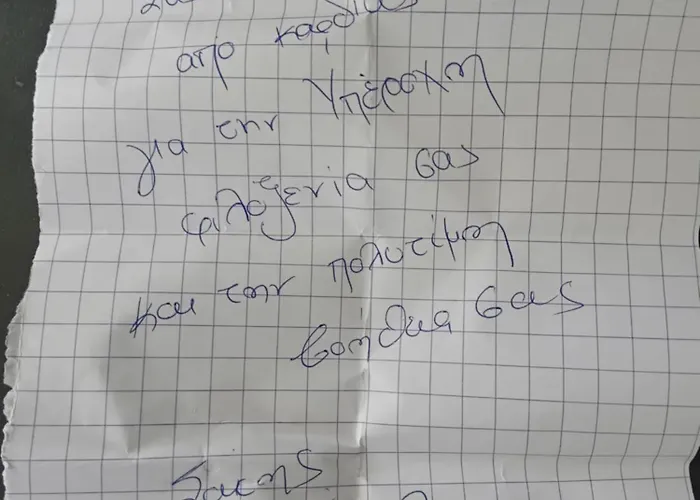 απο καρδιας
για την Υπέροχη
φιλοξενια σας
και την πολυτίμη
βοήθια σας